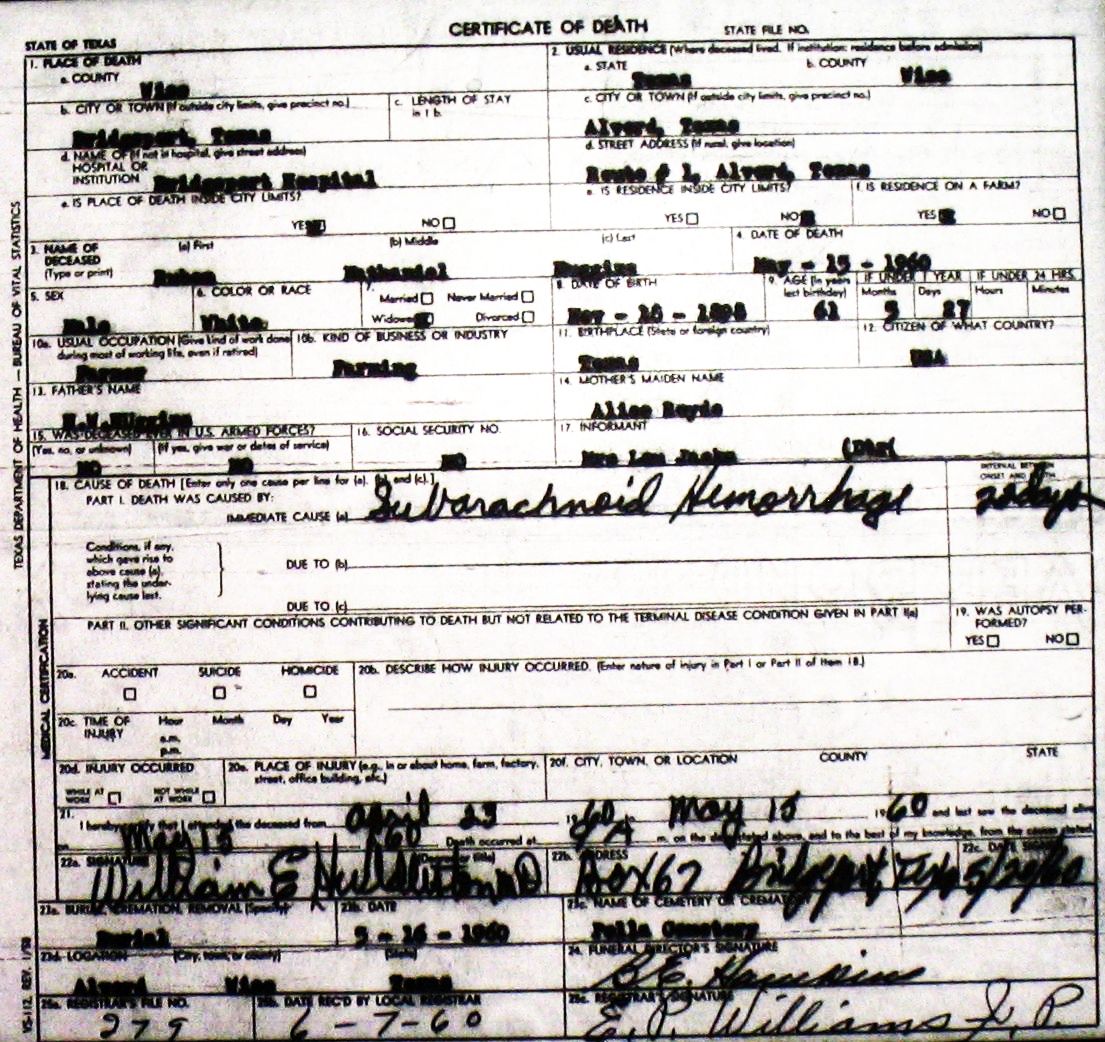 CERTIFICATE OF DEATH STATE FILE NO.
STATE OF TEXAS
1. PLACE OF DEATH
a. COUNTY
Wise
2. USUAL RESIDENCE (Where deceased lived. If institution: residence before admission)
a. STATE b. COUNTY
Texas Wise
b. CITY OR TOWN (If outside city limits, give precinct no.)
Bridgeport, Texas
c. LENGTH OF STAY
in 1 b.
c. CITY OR TOWN (If outside city limits, give precinct no.)
Alvord, Texas
d. NAME OF (If not in hospital, give street address)
HOSPITAL OR
INSTITUTION Bridgeport Hospital
d. STREET ADDRESS (If rural, give location)
Route # 1, Alvord, Texas
e. IS PLACE OF DEATH INSIDE CITY LIMITS?
YES NO
e. IS RESIDENCE INSIDE CITY LIMITS?
YES NO
f. IS RESIDENCE ON A FARM?
YES NO
3. NAME OF
DECEASED
(Type or print)
(a) First (b) Middle (c) Last
Nathaniel Huggins
4. DATE OF DEATH
May - 15 - 1960
5. SEX
Male
6. COLOR OR RACE
White
7.
Married Never Married
Widowed Divorced
8. DATE OF BIRTH
Nov - 18 - 1898
9. AGE (In years
last birthday)
61
IF UNDER 1 YEAR
Months Days
5 27
IF UNDER 24 HRS.
Hours Minutes
10a. USUAL OCCUPATION (Give kind of work done
during most of working life, even if retired)
Farmer
10b. KIND OF BUSINESS OR INDUSTRY
Farming
11. BIRTHPLACE (State or foreign country)
Texas
12. CITIZEN OF WHAT COUNTRY?
USA
13. FATHER'S NAME
Huggins
14. MOTHER'S MAIDEN NAME
Alice
15. WAS DECEASED EVER IN U.S. ARMED FORCES?
(Yes, no, or unknown) (If yes, give war or dates of service)
NO NO
16. SOCIAL SECURITY NO.
NO
17. INFORMANT
Mrs
18. CAUSE OF DEATH [Enter only one cause per line for (a), (b), and (c).]
PART I. DEATH WAS CAUSED BY:
IMMEDIATE CAUSE (a) Subarachnoid Hemorrhage
INTERVAL BETWEEN
ONSET AND DEATH
days
Conditions, if any,
which gave rise to
above cause (a),
stating the under-
lying cause last.
DUE TO (b)
DUE TO (c)
PART II. OTHER SIGNIFICANT CONDITIONS CONTRIBUTING TO DEATH BUT NOT RELATED TO THE TERMINAL DISEASE CONDITION GIVEN IN PART I(a)
19. WAS AUTOPSY PER-
FORMED?
YES NO
20a. ACCIDENT SUICIDE HOMICIDE
20b. DESCRIBE HOW INJURY OCCURRED. (Enter nature of injury in Part I or Part II of Item 18.)
20c. TIME OF
INJURY
Hour Month Day Year
a.m.
p.m.
20d. INJURY OCCURRED
WHILE AT
WORK
NOT WHILE
AT WORK
20e. PLACE OF INJURY (e.g., in or about home, farm, factory,
street, office building, etc.)
20f. CITY, TOWN, OR LOCATION COUNTY STATE
21.
I hereby certify that I attended the deceased from April 23 1960 May 15 1960 and last saw the deceased alive
on May 15 60 Death occurred at m. on the date stated above, and to the best of my knowledge, from the causes stated.
22a. SIGNATURE (Degree or title)
William E Huddleston MD
22b. ADDRESS
Box 67 Bridgeport Tex
22c. DATE SIGNED
5/20/60
23a. BURIAL, CREMATION, REMOVAL (Specify)
Burial
23b. DATE
5 - 16 - 1960
23c. NAME OF CEMETERY OR CREMATORY
Pella Cemetery
23d. LOCATION (City, town, or county) (State)
Alvord Wise Texas
24. FUNERAL DIRECTOR'S SIGNATURE
B.E. Hawkins
25a. REGISTRAR'S FILE NO.
279
25b. DATE REC'D BY LOCAL REGISTRAR
6 - 7 - 60
25c. REGISTRAR'S SIGNATURE
E. P. Williams J. P.
TEXAS DEPARTMENT OF HEALTH — BUREAU OF VITAL STATISTICS
MEDICAL CERTIFICATION
VS-112 REV. 1/58